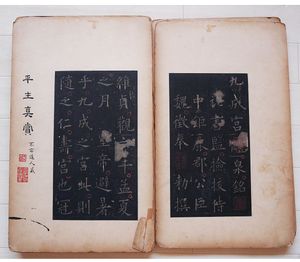 九成宮醴泉銘
祕書監檢校侍
中鉅鹿郡公臣
魏徵奉 勅撰
維貞觀六年孟夏
之月皇帝避暑
乎九成之宮此則
隨之仁壽宮也冠
平生真賞
道人